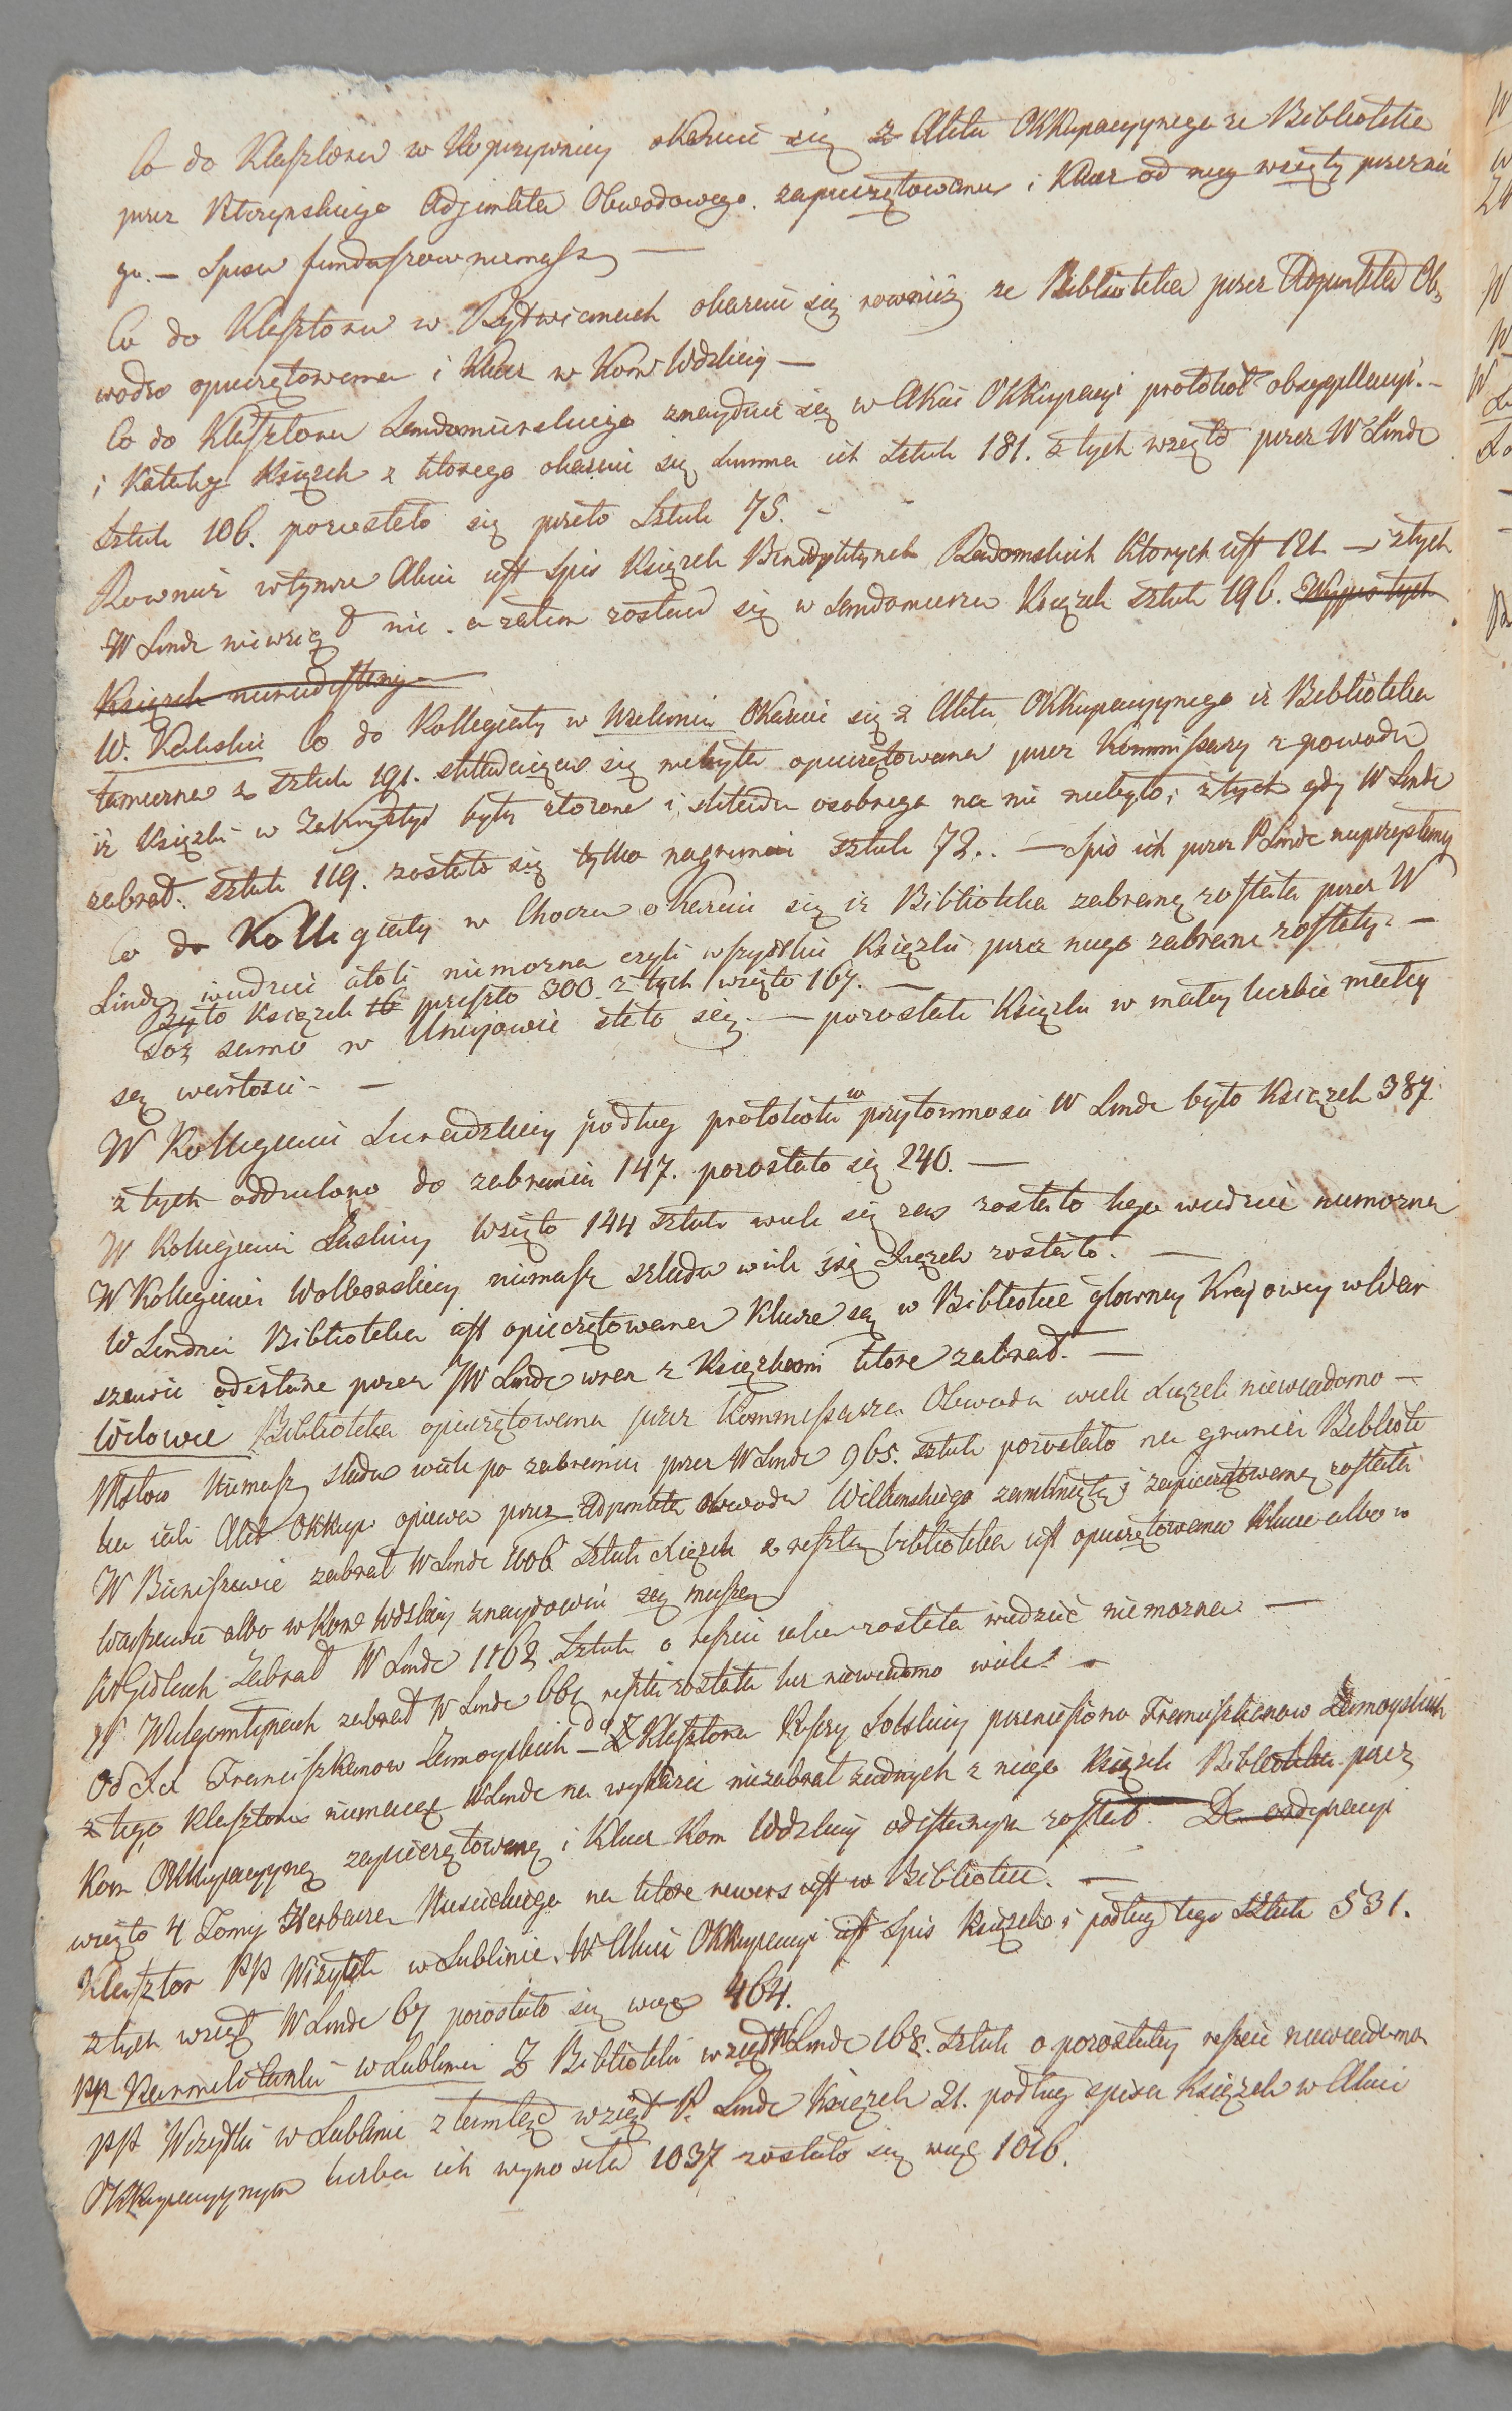 Co do Klasztoru w Koprzywnicy okazuie się z Aktu Okkupacyynego że Biblioteka
przez Adjunkta Obwodowego zapieczętowana i Klucz od niey wzięty przez nie
go. — Spisu funduszow niemasz —
Co do Klasztoru w Rytwianach okazuie się rownież że Biblioteka przez Adjunkta Ob„
wodu opieczętowana i Klucz w Kom Wdzkiey —
Co do Klasztoru Sandomirskiego znayduie się w Akcie Okkupacyi protokoł obsygillacyi. —
i Katalog Książek z ktorego okazuie się Summa ich Sztuk 181. z tych wzięto przez W Linde
Sztuk 106. pozostało się przeto Sztuk 75. —
Rownież w tymże Akcie jest Spis Książek Benedyktynek Radomskich ktorych jest 121 — z tych
W Linde niewziął nic. a zatem zostało się w Sandomierzu Książek sztuk 196. Wypis tych
Książek
W. Kaliskie Co do Kollegiaty w Wieluniu Okazuie się z Aktu Okkupacyynego iż Biblioteka
tameczna z sztuk 191. składaiąca się niebyła opieczętowana przez Kommissarzy z powodu
iż Książki w Zakrystyi były złożone i składu osobnego na nie niebyło; z tych gdy W Linde
zabrał sztuk 119. zostało się tylko na gruncie sztuk 72. — Spis ich przez P Linde nieprzysłany
Co do Kollegiaty w Choczu okazuie się iż Biblioteka zabraną została przez W
Linde, wiedzieć atoli niemożna czyli wszystkie Książki przez niego zabrane zostały. —
Było Książek przeszło 300 z tych wzięto 167. —
Toż samo w Uniejowie stało się. — pozostałe Książki w małey liczbie małey
są wartości. —
W Kollegiacie Sieradzkiey podług protokołu w przytomności W Linde było Książek 387.
z tych oddzielono do zabrania 147. pozostało się 240. —
W Kollegiacie Łaskiey Wzięto 144 Sztuk wiele się zaś zostało tego wiedzieć niemożna
W Kollegiacie Wolborskiey niemasz szladu wiele się Książek zostało. —
W Lendzie Biblioteka jest opieczętowana Klucze są w Bibliotece głowney Krajowey w War
szawie odesłane przez JW Linde wraz z Książkami ktore zabrał. —
Witowie Biblioteka opieczętowana przez Kommissarza Obwodu wiele Książek niewiadomo —
Mstow Niemasz śladu wiele po zabraniu przez W Linde 965. sztuk pozostało na gruncie Bibliote
ka iak Akt Okkup. opiewa przez Adjunkta Obwodu zamkniętą i zapieczętowaną została
W Bieniszewie zabrał W Linde 1106 Sztuk Książek a reszta biblioteka jest opieczętowana Klucze albo w
Warszawie albo w Kom Wdzkiey znaydować się muszą
W Gidlach Zabrał W Linde 1162 Sztuk o reszcie iaka została wiedzieć niemożna. —
W Wielgomłynach zabrał W Linde 667 reszta została lecz niewiadomo wiele. —
Od Franciszkanow Zamoyskich — Z Klasztora przeniesiono Franciszkanow Zamoyskich
z tego Klasztoru niemaiąc W Linde na wykazie niezabrał żadnych z niego Książek Biblioteka przez
Kom Okkupacyyną zapieczętowaną i Klucz Kom Wdzkiey odesłanym został. Do ordynacyi
wzięto 4 Tomy Herbarza Niesieckiego na ktore rewers jest w Bibliotece. —
Klasztor PP Wizytek w Lublinie. W Akcie Okkupacyi jest Spis Książek i podług tego Sztuk 531.
z tych wziął W Linde 67 pozostało się więc 464.
PP Karmelitanki w Lublinie Z Biblioteki wziął W Linde 168. Sztuk o pozostałey reszcie niewiadomo
PP Wizytki w Lublinie z tamtąd wziął P. Linde Książek 21. podług spisu Książek w Akcie
Okkupacyynym liczba ich wynosiła 1037 zostało się więc 1016.